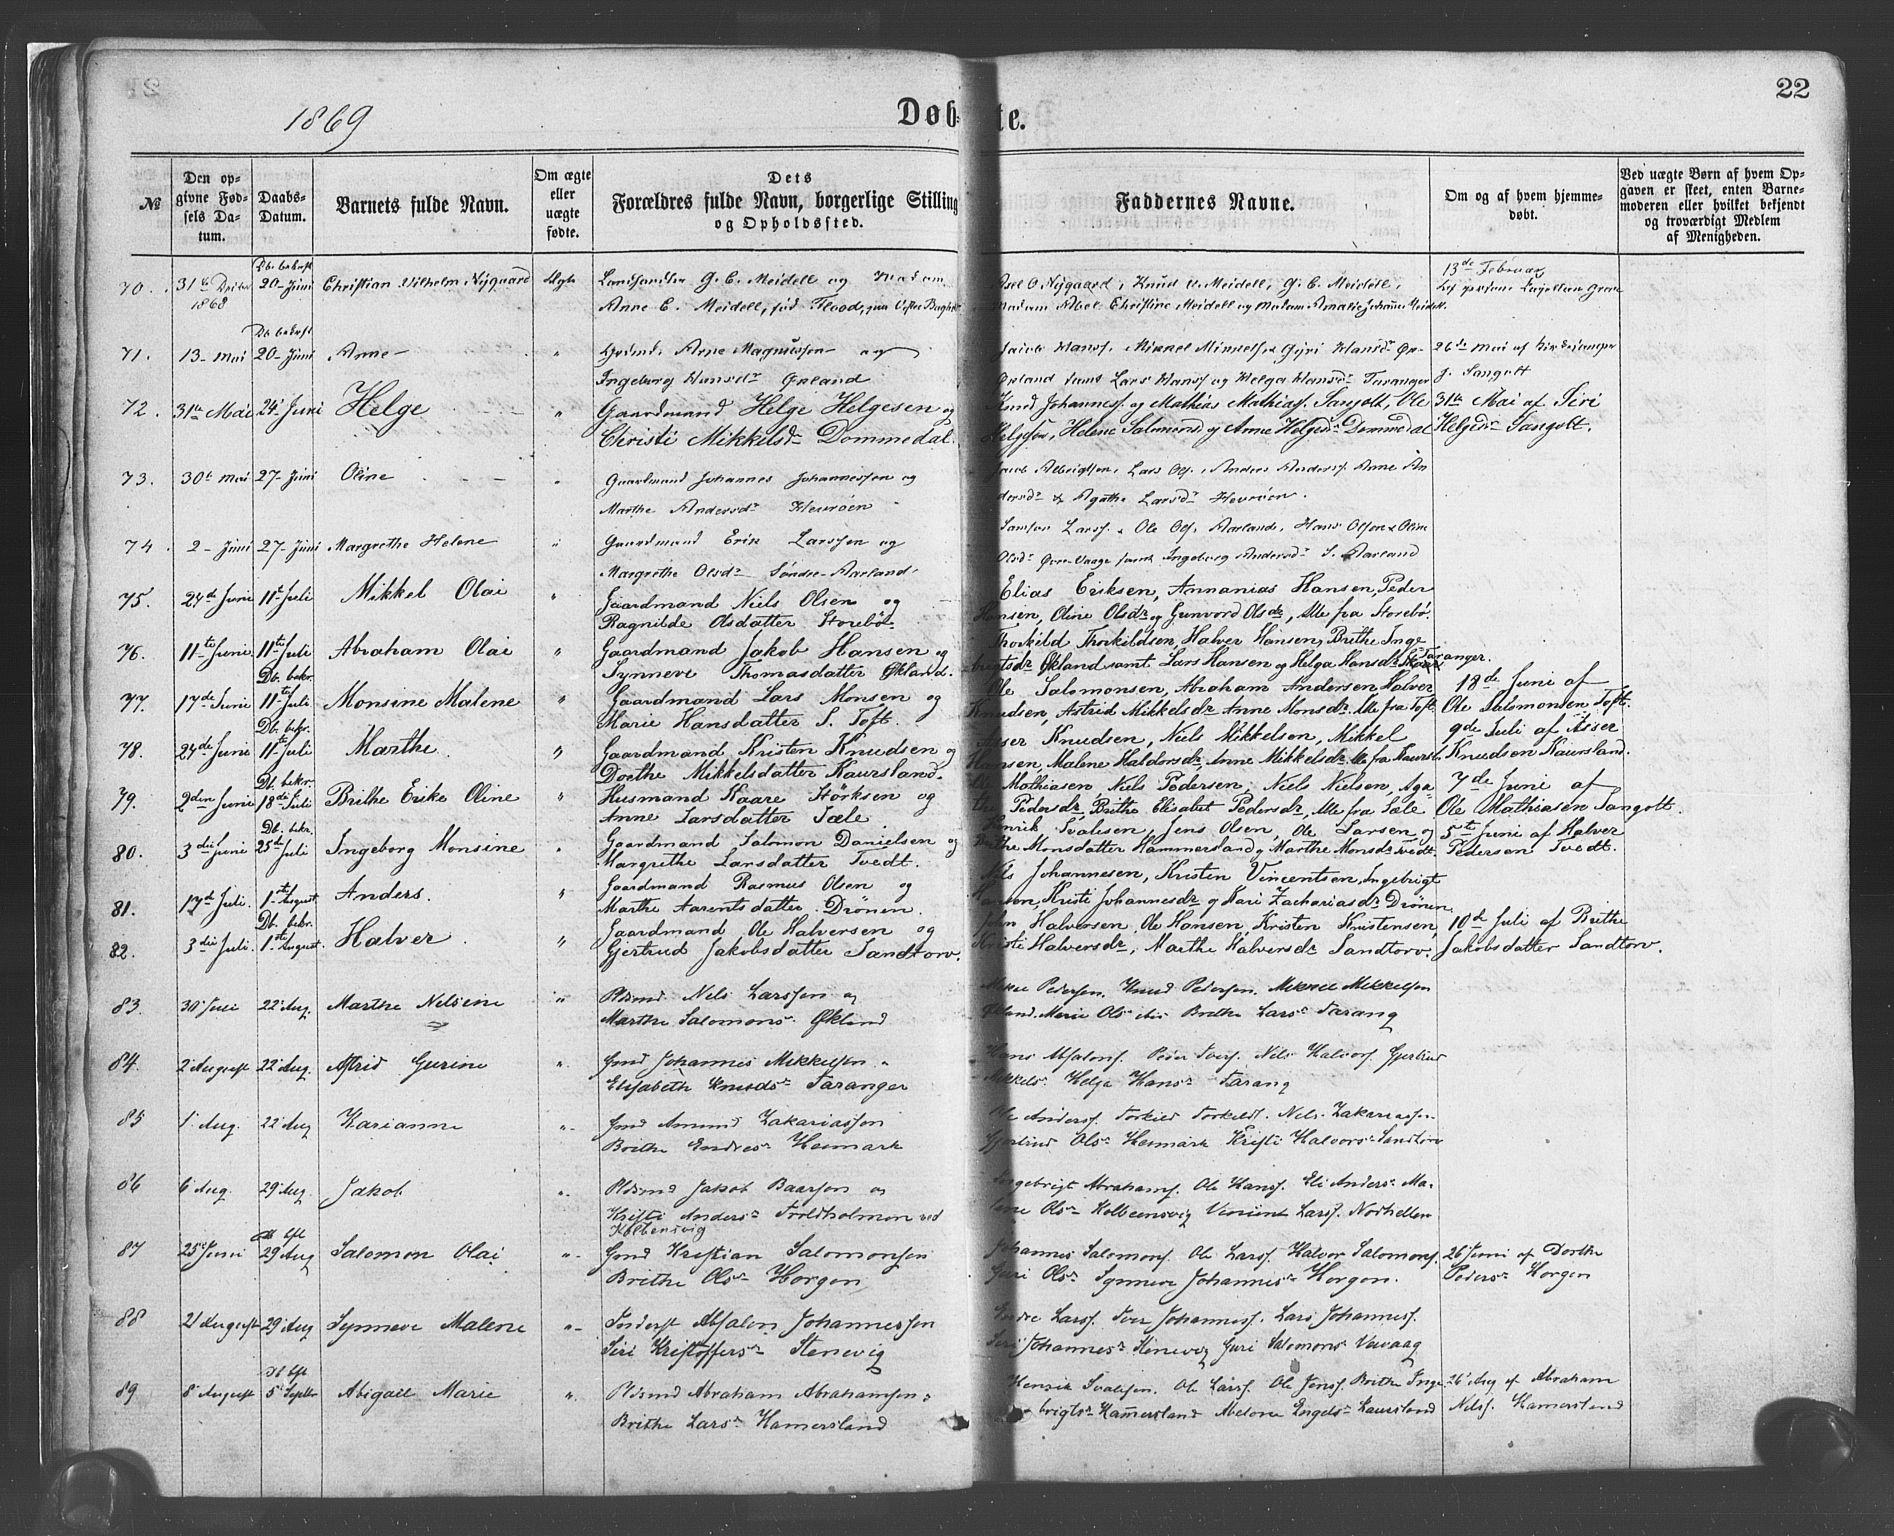 22
1869
Døbte.
№
Den opgivne Fødsels Datum.
Daabs-Datum.
Barnets fulde Navn.
Om ægte eller uægte fødte.
Dets Forældres fulde Navn, borgerlige Stilling og Opholdssted.
Faddernes Navne.
Om og af hvem hjemmedøbt.
Ved uægte Børn af hvem Opgaven er skeet, enten Barnemoderen eller hvilket bekjendt og troværdigt Medlem af Menigheden.
70. 31te 1868 Db. bekræft 20 Juni Christian Vilhelm Nygaard Ægte G. C. Meidell og Madam
Anne C. Meidell, fød Flood,
Nygaard, Knud Meidell, G. C. Meidell,
Madam Abel Christine Meidell og Madam Amalie Johanne Meidell.
13de Februar
71. 13 Mai Db. bekræft 20 Juni Anne " Arne Magnussen og
Ingeborg Hansdr Økland
Jacob Hans. Mikkel
Økland samt Lars Hans. og Helga Hansdr Taranger
26de Mai af
Sangolt
72. 31te Mai 24 Juni Helge " Gaardmand Helge Helgesen og
Christi Mikkelsdr Dommedal.
Knud Johannes. og Mathias Mathias. Sangolt, Ole
Helgesen, Helene Salmonsd og Anne Helgesdr Dommedal
31te Mai af Siri
Helgesdr Sangolt.
73. 30te Mai 27 Juni Oline " Gaardmand Johannes Johannessen og
Marthe Andersdr Hevrøen
Jacob Albrigtsen, Lars Ols., Anders Anders. Anne An
dersdr & Agathe Larsdr Hevrøen.
74. 2 Juni 27 Juni Margrethe Helene " Gaardmand Erik Larssen og
Margrethe Olsdr Søndre Aarland
Samson Lars. & Ole Ols. Aarland, Hans Olsen & Oline
Olsdr Øvre Vaage samt Ingeborg Andersdr S. Aarland
75. 24de Juni 11te Juli Mikkel Olai " Gaardmand Niels Olsen og
Ragnilde Olsdatter Storebø
Elias Eriksen, Annanias Hansen, Peder
Hansen, Oline Olsdr og Gunvord Olsdr, Alle fra Storebø.
76. 11te Juni 11te Juli Abraham Olai " Gaardmand Jakob Hansen og
Synneve Thomasdatter Økland.
Thorkild Thorkildsen, Halver Hansen, Brithe Inge
brigtsdr Økland samt Lars Hansen og Helga Hansdr Taranger.
77. 17de Juni Db. bekr. 11te Juli Monsine Malene " Gaardmand Lars Monsen og
Marie Hansdatter S. Toft.
Ole Salomonsen, Abraham Andersen, Halver
Knudsen, Astrid Mikkelsdr Anne Monsdr Alle fra Toft.
18de Juni af
Ole Salomonsen Toft.
78. 24de Juni Db. bekr. 11te Juli Marthe. " Gaardmand Kristen Knudsen og
Dorthe Mikkelsdatter Kaursland.
Asser Knudsen, Niels Mikkelsen, Mikkel
Hansen, Malene Haldorsdr, Anne Mikkelsdr Alle fra Kaursl.
9de Juli af Asser
Knudsen Kaursland.
79. 2den Juni Db. bekr. 18de Juli Brithe Erike Oline " Husmand Kaare Størksen og
Anne Larsdatter Sæle
Ole Mathiasen, Niels Pedersen, Niels Nielsen, Aga
the Pedersdr, Brithe Elisabet Pedersdr, Alle fra Sæle
7de Juni af
Ole Mathiasen Sangolt.
80. 3die Juni Db. bekr. 25de Juli Ingeborg Monsine " Gaardmand Salomon Danielsen og
Margrethe Larsdatter Tvedt.
Henrik Svalesen, Jens Olsen, Ole Larsen og
Brithe Monsdatter Hammersland og Marthe Monsdr Tvedt.
5te Juni af Halver
Pedersen Tvedt.
81. 17de Juli. 1ste August. Anders. " Gaardmand Rasmus Olsen og
Marthe Aarentsdatter Drönen.
Nils Johannesen, Kristen Vincentsen, Ingebrigt
Hansen, Kristi Johannesdr og Kari Zachariasdr Drönen.
82. 3die Juli. Db. bekr. 1ste August. Halver. " Gaardmand Ole Halversen og
Gjertrud Jakobsdatter Sandtorv.
John Halversen, Ole Hansen, Kristen Kristensen,
Kristi Halversdr, Marthe Halversdr Sandtorv.
10de Juli af Brithe
Jakobsdatter Sandtorv.
83. 30 Juli 22 Aug. Marthe Nelsine " Nels Larssen og
Marthe Salomonsr Økland
Mikel Pedersen. Knud Pedersen. Mikkel Mikkelsen
Økland. Marie Olsr Brithe Larsr Tarang
84. 2 August 22 Aug. Astrid Gurine " Gmd Johannes Mikkelsen
Elisabeth Knudsr Taranger
Hans Absalons. Peder Ivers. Nels Halvors. Gjertrud
Mikkelsr Helga Hansr Tarang
85 1 Aug. 22 Aug Karianne " Gmd Amund Zakariassen
Brithe Endresr Heimark
Ole Anders. Torkild Torkilds. Nels Zakariassen
Gjertrud Olsr Heimark Kristi Halvorsr Sandtorv
86 6 Aug. 29 Aug. Jakob " Jakob Baarsen og
Kristi Andersr Troldholmen ved
Kolbensvig
Ingebrigt Abrahams. Ole Hans. Eli Andersr Ma-
lene Olsr Kolbeensvig Vinsent Lars. Nothellen
87 25 Juni 29 Aug Salomon Olai " Gmd Kristian Salomonsen
Brithe Olsr Horgen
Johannes Salomons. Ole Lars. Halvor Salomons.
Guri Olsr Synneve Johannesr Horgen.
26 Juni af Dorthe
Pedersr Horgen
88 21 August 29 Aug Synneve Malene " Absalon Johannessen
Siri Kristoffersr Stenevig
Endre Lars. Iver Johannes. Lars Johannes.
Siri Johannesr Stenevig Guri Salomonsr Vervaag
89 8 August 5 Septbr Abigael Marie " Abraham Abrahamsen
Brithe Larsr Hamersland
Henrik Svalesen. Ole Lars. Ole Jens. Brithe Inge
brigtsr Hamersland Abelone Engelsr Kaursland
26 Aug af Abraham
Nels. Hamersland